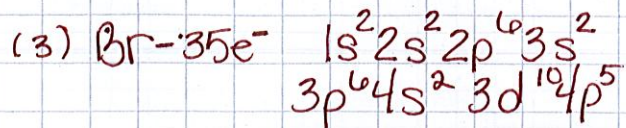 (3) Br-35e⁻ 1s²2s²2p⁶3s²
3p⁶4s²3d¹⁰4p⁵